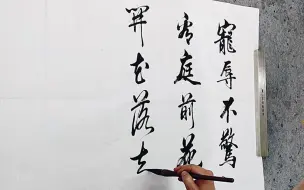 寵辱不驚
看庭前花
開花落去